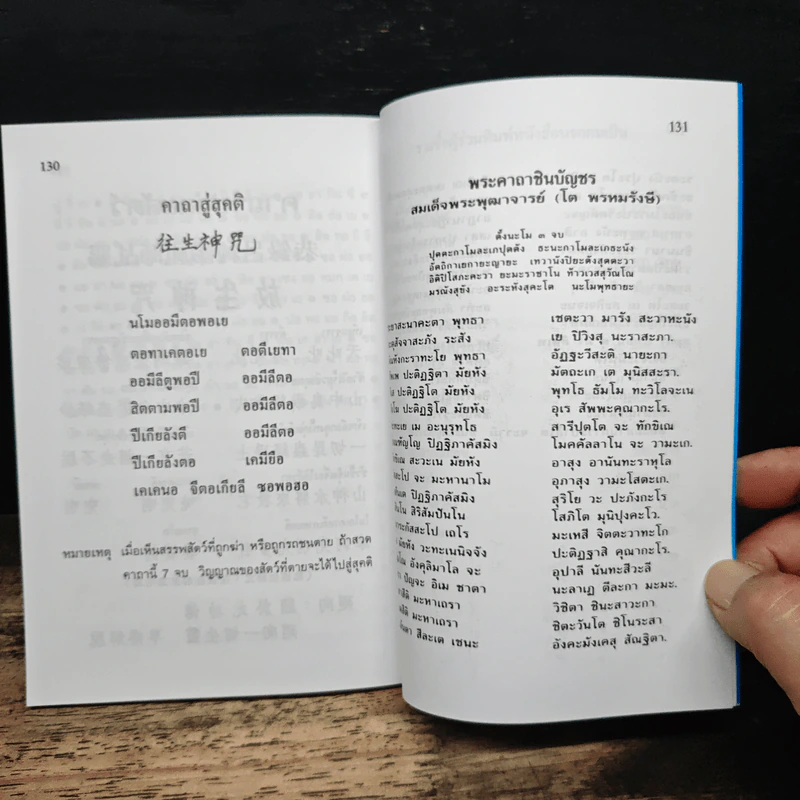 130
คาถาสู่สุคติ
往生神咒
นโมออมีตอพอเย
ตอทาเคตอเย ตอตีเยทา
ออมีลีตูพอปี ออมีลีตอ
สิตตามพอปี ออมีลีตอ
ปีเกียลังตี ออมีลีตอ
ปีเกียลังตอ เคมียือ
เคเคนอ จีตอเกียลี ซอพอฮอ
หมายเหตุ เมื่อเห็นสรรพสัตว์ที่ถูกฆ่า หรือถูกรถชนตาย ถ้าสวด
คาถานี้ 7 จบ วิญญาณของสัตว์ที่ตายจะได้ไปสู่สุคติ
131
พระคาถาชินบัญชร
สมเด็จพระพุฒาจารย์ (โต พรหมรังษี)
ตั้งนะโม ๓ จบ
ปุตตะกาโมละเภปุตตัง ธะนะกาโมละเภธะนัง
อัตถิกาเยกายะญายะ เทวานังปิยะตังสุตตะวา
อิติปิโสภะคะวา ยะมะราชาโน ท้าวเวสสุวัณโณ
มรณังสุขัง อะระหังสุคะโต นะโมพุทธายะ
สะนาคะตา พุทธา เชตะวา มารัง สะวาหะนัง
สัจจาสะภัง ระสัง เย ปิวิงสุ นะราสะภา.
กะราทะโย พุทธา อัฏฐะวีสะติ นายะกา
ปะติฏฐิตา มัยหัง มัตถะเก เต มุนิสสะรา.
ปะติฏฐิโต มัยหัง พุทโธ ธัมโม ทะวิโลจะเน
ปะติฏฐิโต มัยหัง อุเร สัพพะคุณากะโร.
เม อะนุรุทโธ สารีปุตโต จะ ทักขิเณ
ปิฏฐิภาคัสมิง โมคคัลลาโน จะ วามะเก.
สะวะเน มัยหัง อาสุง อานันทะราหุโล
จะ มะหานาโม อุภาสุง วามะโสตะเก.
ปิฏฐิภาคัสมิง สุริโย วะ ปะภังกะโร
สิริสัมปันโน โสภิโต มุนิปุงคะโว.
เถโร มะเหสี จิตตะวาทะโก
มัยหัง วะทะเนนิจจัง ปะติฏฐาสิ คุณากะโร.
อังคุลิมาโล จะ อุปาลี นันทะสีวะลี
ปัญจะ อิเม ชาตา นะลาเฏ ตีละกา มะมะ.
มะหาเถรา วิชิตา ชินะสาวะกา
มะหาเถรา ชิตะวันโต ชิโนระสา
สีละเต เชนะ อังคะมังเคสุ สัณฐิตา.